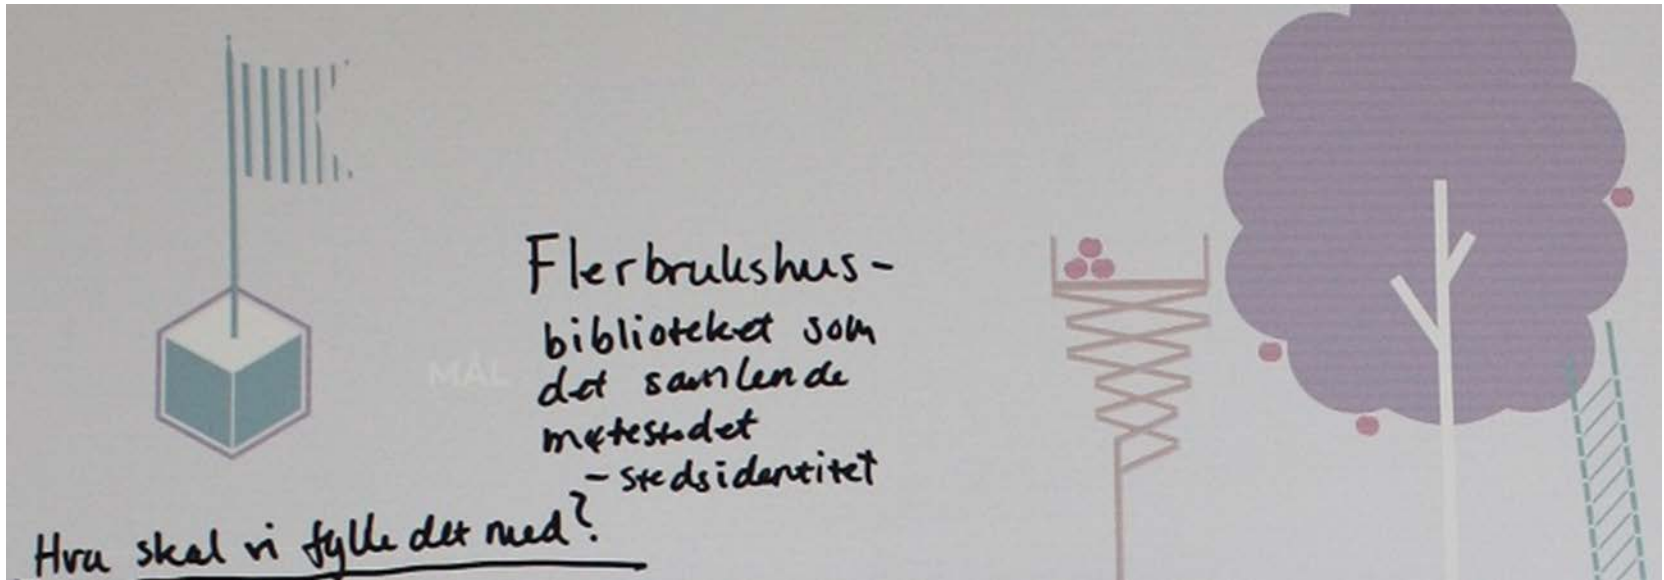 Flerbrukshus-
biblioteket som
MÅL
det samlende
møtestedet
- stedsidentitet
Hva skal vi fylle det med?